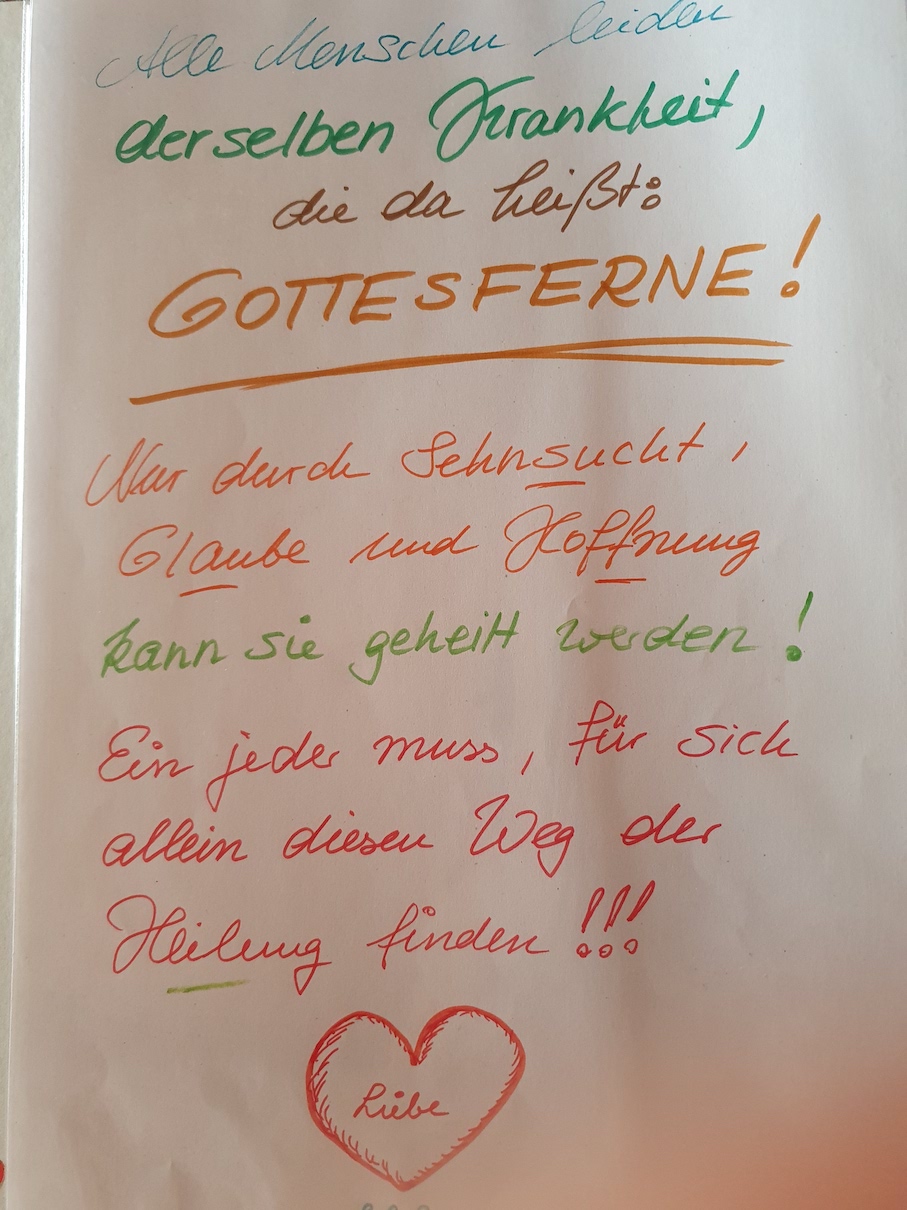 Alle Menschen leiden
derselben Krankheit,
die da heißt:
GOTTESFERNE!
Nur durch Sehnsucht,
Glaube und Hoffnung
kann sie geheilt werden!
Ein jeder muss, für sich
allein diesen Weg der
Heilung finden!!!
Liebe